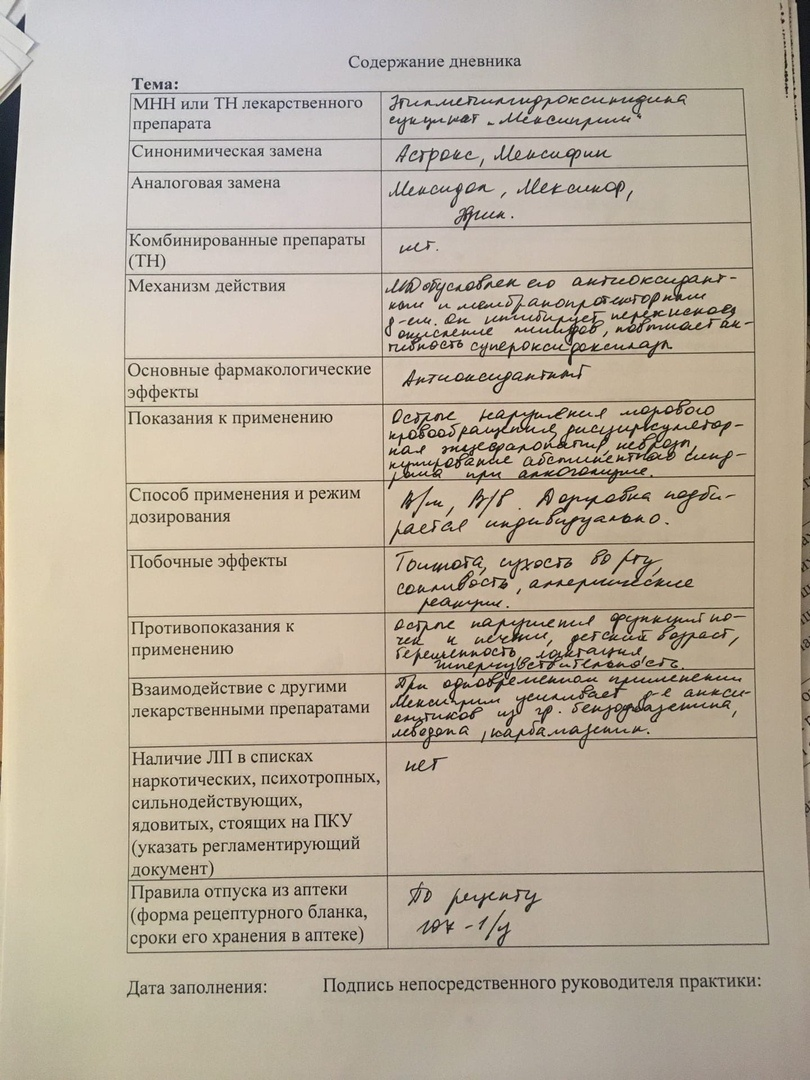 Содержание дневника
Тема:
МНН или ТН лекарственного
препарата
Этилметилгидроксипидина
сукцинат „Мексиприм“
Синонимическая замена
Астрокс, Мексифин
Аналоговая замена
Мексидол, Мексикор,
Комбинированные препараты
(ТН)
нет.
Механизм действия
МД обусловлен его антиоксидант-
ным и мембранопротекторным
д-ем. Он ингибирует перекисное
окисление липидов, повышает ак-
тивность супероксидоксидазы
Основные фармакологические
эффекты
Антиоксидантный
Показания к применению
Острые нарушения мозгового
кровообращения, дисциркулятор-
ная энцефалопатия, неврозы,
купирование абстинентного синд-
рома при алкоголизме.
Способ применения и режим
дозирования
В/м, В/в. Дозировка подби-
рается индивидуально.
Побочные эффекты
Тошнота, сухость во рту,
сонливость, аллергические
реакции.
Противопоказания к
применению
Острые нарушения функций по-
чек и печени, детский возраст,
беременность, лактация,
гиперчувствительность.
Взаимодействие с другими
лекарственными препаратами
При одновременном применении
Мексиприм усиливает д-е анкси-
олитиков из гр. бензодиазепина,
леводопа, карбамазепин.
Наличие ЛП в списках
наркотических, психотропных,
сильнодействующих,
ядовитых, стоящих на ПКУ
(указать регламентирующий
документ)
нет
Правила отпуска из аптеки
(форма рецептурного бланка,
сроки его хранения в аптеке)
По рецепту
107-1/у
Дата заполнения:
Подпись непосредственного руководителя практики: